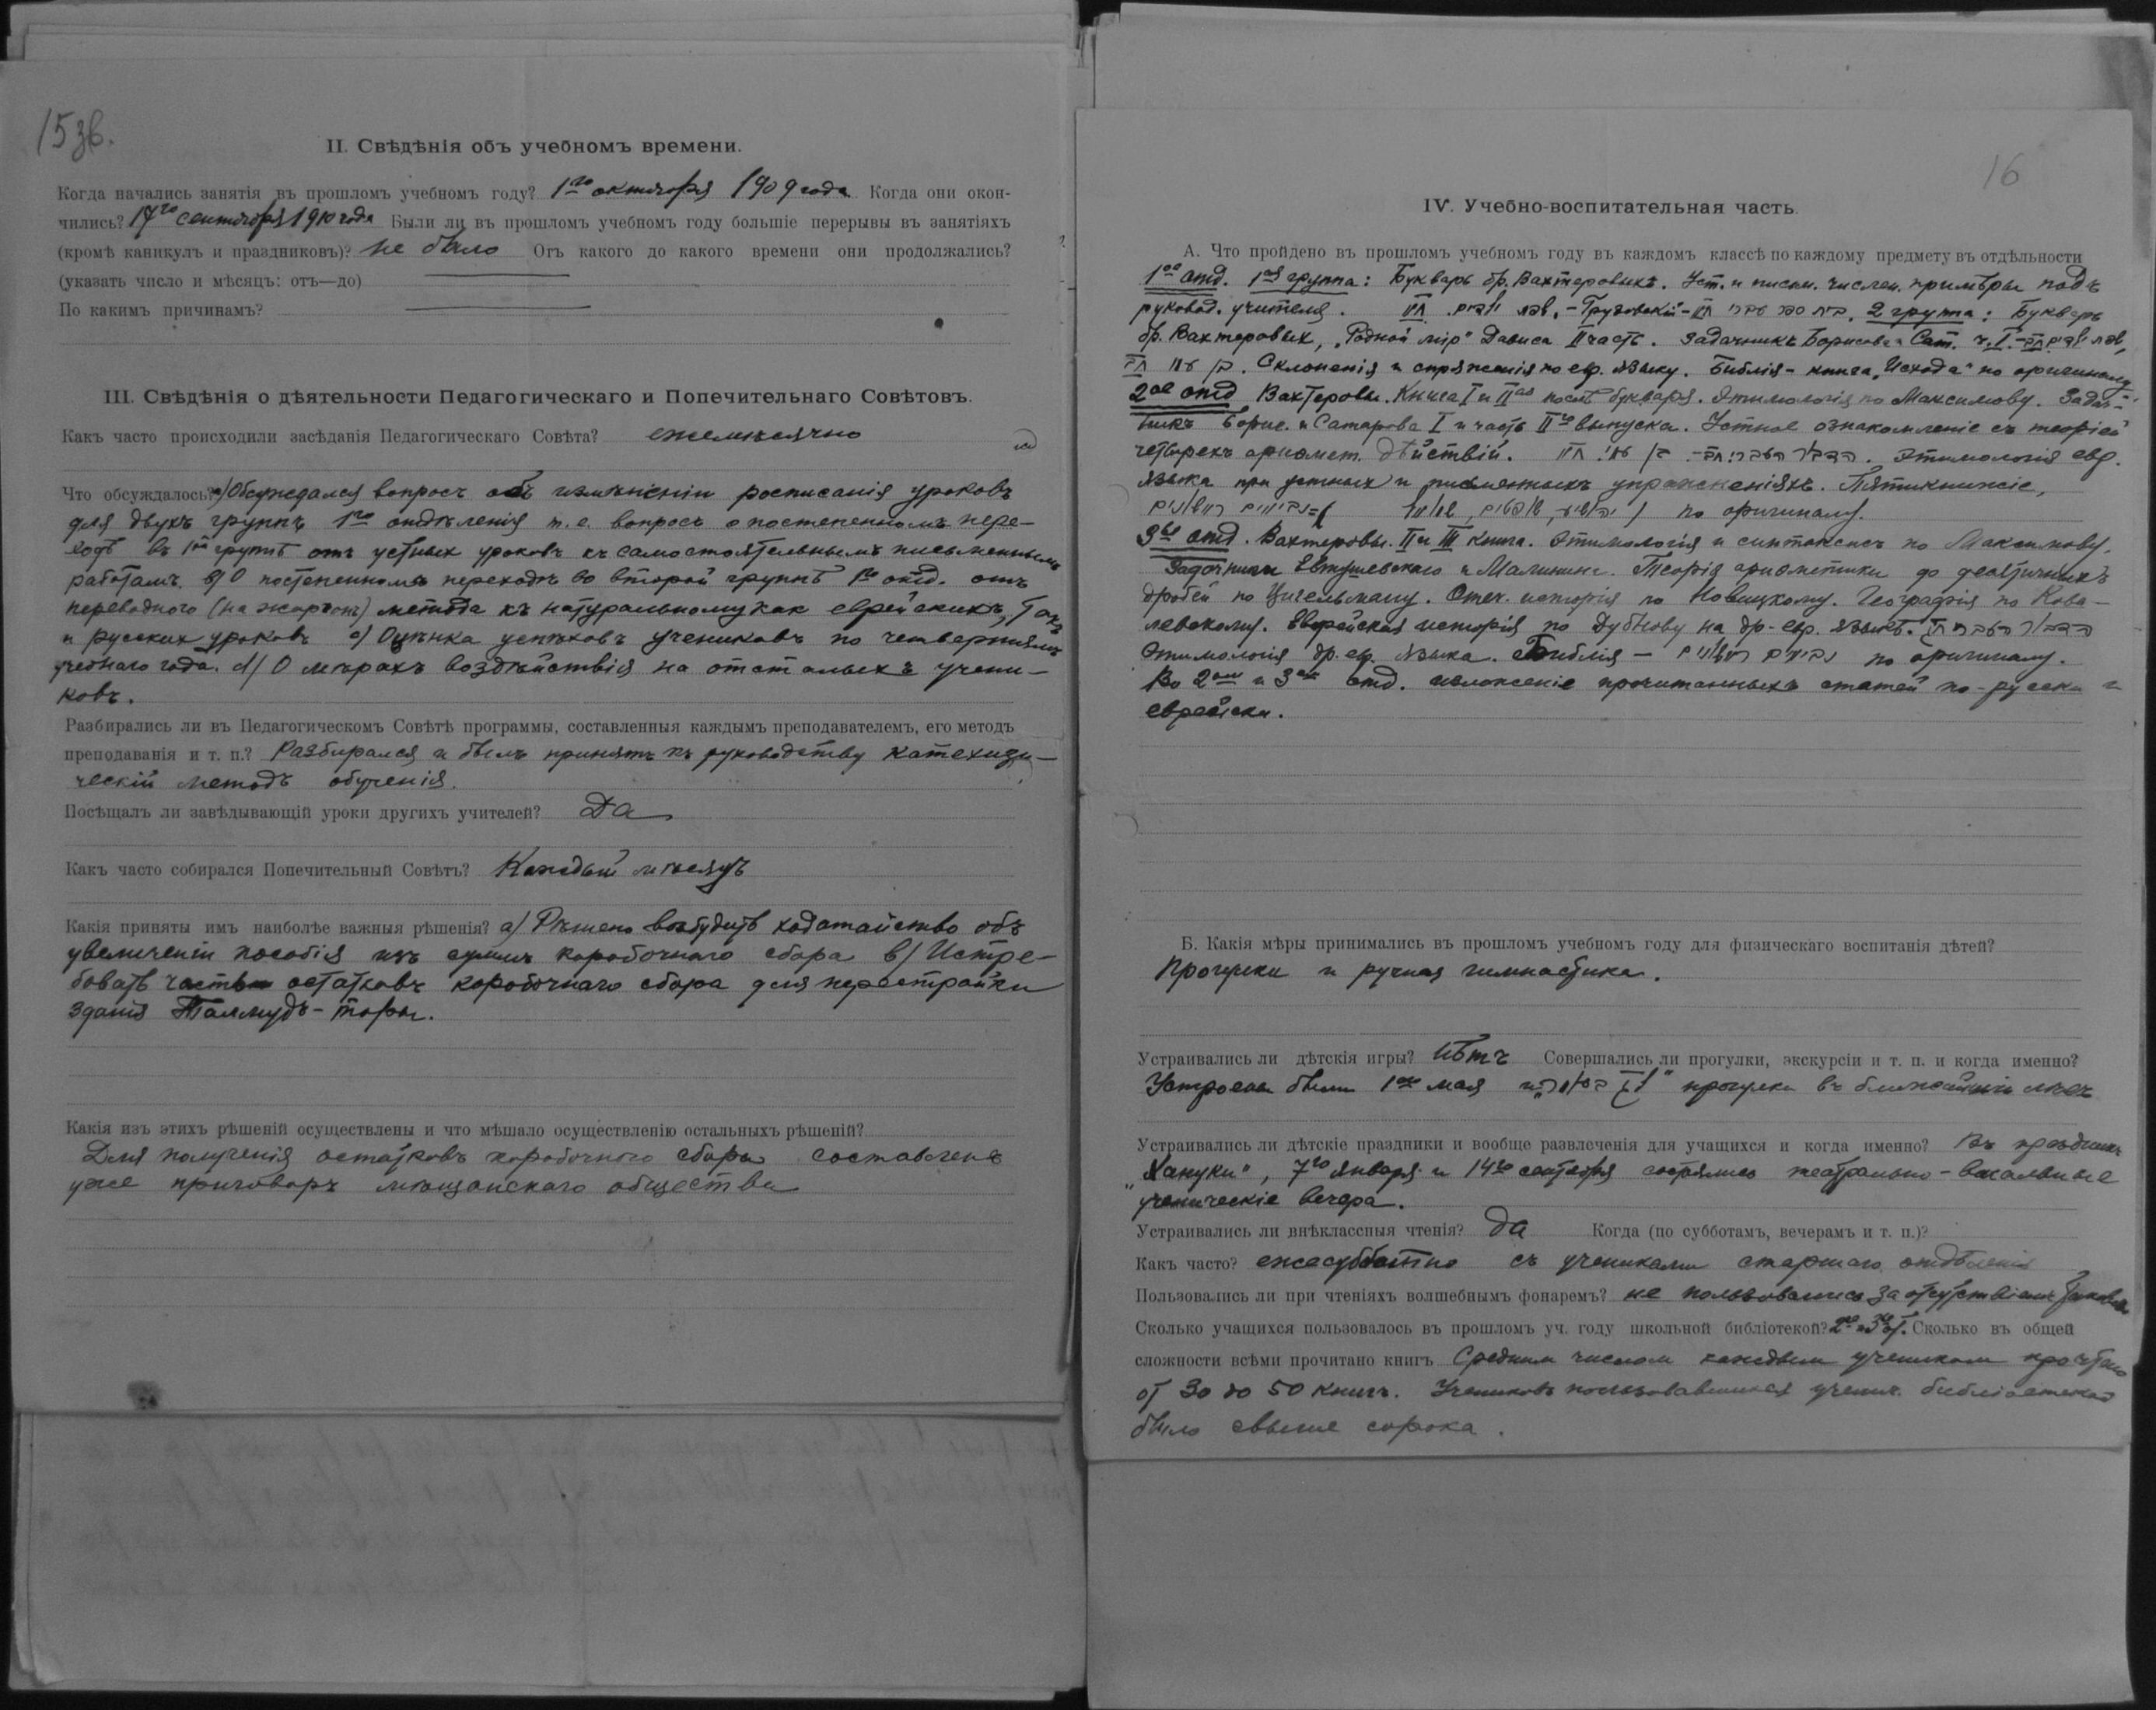 15 зв.
II. Свѣдѣнія объ учебномъ времени.
Когда начались занятія въ прошломъ учебномъ году? 1го октября 1909 года Когда они окон-
чились? 17го сентября 1910 года Были ли въ прошломъ учебномъ году большіе перерывы въ занятіяхъ
(кромѣ каникулъ и праздниковъ)? не было Отъ какого до какого времени они продолжались?
(указать число и мѣсяцъ: отъ—до)
По какимъ причинамъ?
III. Свѣдѣнія о дѣятельности Педагогическаго и Попечительнаго Совѣтовъ.
Какъ часто происходили засѣданія Педагогическаго Совѣта? ежемѣсячно
Что обсуждалось? а) Обсуждался вопросъ объ измѣненіи росписанія уроковъ
для двухъ группъ 1го отдѣленія т. е. вопросъ о постепенномъ пере-
ходѣ въ 1ой группѣ отъ устныхъ уроковъ къ самостоятельнымъ письменнымъ
работамъ. в) О постепенномъ переходѣ во второй группѣ 1го отд. отъ
переводного (на жаргонѣ) метода къ натуральному какъ еврейскихъ, такъ
и русскихъ уроковъ с) Оцѣнка успѣховъ учениковъ по четвертямъ
учебнаго года. d) О мѣрахъ воздѣйствія на отсталыхъ учени-
ковъ.
Разбирались ли въ Педагогическомъ Совѣтѣ программы, составленныя каждымъ преподавателемъ, его методъ
преподаванія и т. п.? Разбирался и былъ принятъ къ руководству катехизи-
ческій методъ обученія.
Посѣщалъ ли завѣдывающій уроки другихъ учителей? Да
Какъ часто собирался Попечительный Совѣтъ? Каждый мѣсяцъ
Какія приняты имъ наиболѣе важныя рѣшенія? а) Рѣшено возбудить ходатайство объ
увеличеніи пособія изъ суммъ коробочнаго сбора в) Истре-
бовать часть остатковъ коробочнаго сбора для перестройки
зданія Талмудъ-торы.
Какія изъ этихъ рѣшеній осуществлены и что мѣшало осуществленію остальныхъ рѣшеній?
Для полученія остатковъ коробочнаго сбора составленъ
уже приговоръ мѣщанскаго общества
16
IV. Учебно-воспитательная часть.
А. Что пройдено въ прошломъ учебномъ году въ каждомъ классѣ по каждому предмету въ отдѣльности
1ое отд. 1ая группа: Букварь бр. Вахтеровыхъ. Уст. и письм. числен. примѣры подъ
руковод. учителя. Грузовскій 2 группа: Букварь
бр. Вахтеровых, „Родной мір" Дависа II часть. Задачникъ Борисова и Сат. ч. I.
Склоненія и спряженія по евр. языку. Библія - книга „Исхода" по оригиналу
2ое отд Вахтеровы. Книга I и IIая послѣ букваря. Этимологія по Максимову. Задач-
никъ Борис. и Сатарова I и часть IIго выпуска. Устное ознакомленіе съ теоріей
четырехъ ариѳмет. дѣйствій. Этимологія евр.
языка при устныхъ и письменныхъ упражненіяхъ. Пятикнижіе,
по оригиналу.
3ье отд. Вахтеровы. II и III книга. Этимологія и синтаксисъ по Максимову.
Задачники Евтушевскаго и Малинина. Теорія ариѳметики до десятичныхъ
дробей по Цигельману. Отеч. исторія по Новицкому. Географія по Кова-
левскому. Еврейская исторія по Дубнову на др.-евр. языкѣ.
Этимологія др. евр. языка. Библія — נביאים ראשונים по оригиналу.
Во 2ом и 3ем отд. изложеніе прочитанныхъ статей по-русски и
еврейски.
Б. Какія мѣры принимались въ прошломъ учебномъ году для физическаго воспитанія дѣтей?
Прогулки и ручная гимнастика.
Устраивались ли дѣтскія игры? Нѣтъ Совершались ли прогулки, экскурсіи и т. п. и когда именно?
Устроены были 1го мая и прогулки въ ближайшій лѣсъ
Устраивались ли дѣтскіе праздники и вообще развлеченія для учащихся и когда именно? Въ праздникъ
„Хануки", 7го января и 14го сентября состоялись театрально-вокальные
ученическіе вечера.
Устраивались ли внѣклассныя чтенія? Да Когда (по субботамъ, вечерамъ и т. п.)?
Какъ часто? ежесубботно съ учениками старшаго отдѣленія
Пользовались ли при чтеніяхъ волшебнымъ фонаремъ? не пользовались за отсутствіемъ такового
Сколько учащихся пользовалось въ прошломъ уч. году школьной библіотекой? 2ое и 3ье от. Сколько въ общей
сложности всѣми прочитано книгъ Среднимъ числомъ каждымъ ученикомъ прочитано
от 30 до 50 книгъ. Учениковъ пользовавшихся ученич. библіотекой
было свыше сорока.